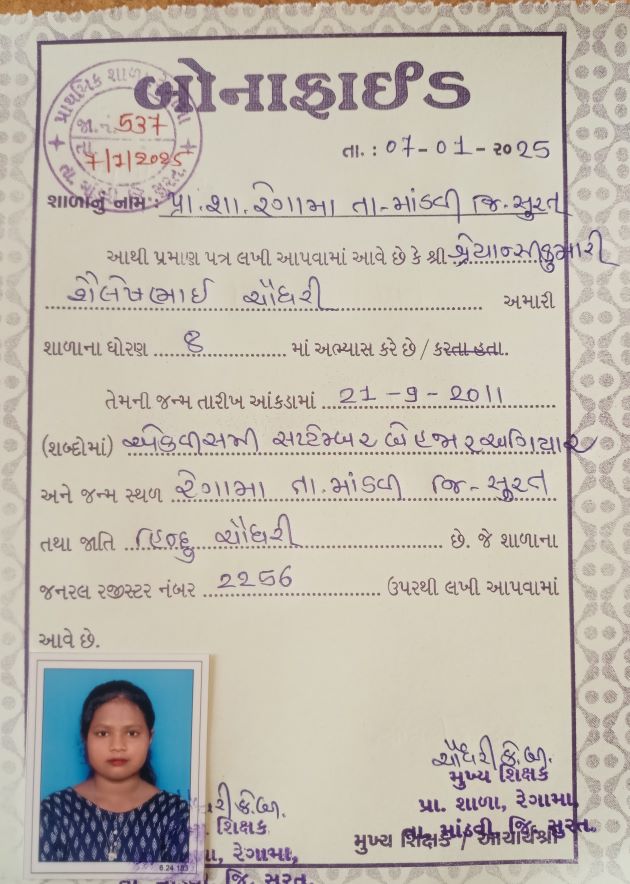 બોનાફાઈડ
પ્રાથમિક શાળા રેગામા
જા.નં. 537
તા. 7/1/2025
તા. માંડવી જિ. સુરત.
તા. : 07-01-૨૦25
શાળાનું નામ : પ્રા.શા. રેગામા તા-માંડવી જિ.સુરત
આથી પ્રમાણ પત્ર લખી આપવામાં આવે છે કે શ્રી શ્રેયાન્સીકુમારી
શૈલેષભાઈ ચૌધરી અમારી
શાળાના ધોરણ 8 માં અભ્યાસ કરે છે / કરતા હતા.
તેમની જન્મ તારીખ આંકડામાં 21-9-2011
(શબ્દોમાં) એકવીસમી સપ્ટેમ્બર બે હજાર અગિયાર
અને જન્મ સ્થળ રેગામા તા.માંડવી જિ-સુરત
તથા જાતિ હિન્દુ ચૌધરી છે. જે શાળાના
જનરલ રજીસ્ટર નંબર 2256 ઉપરથી લખી આપવામાં
આવે છે.
ચૌધરી કે.બી.
મુખ્ય શિક્ષક
પ્રા. શાળા, રેગામા,
તા. માંડવી, જિ. સુરત.
મુખ્ય શિક્ષક / આચાર્યશ્રી
રી કે.બી.
શિક્ષક
ા, રેગામા,
જિ. સુરત.